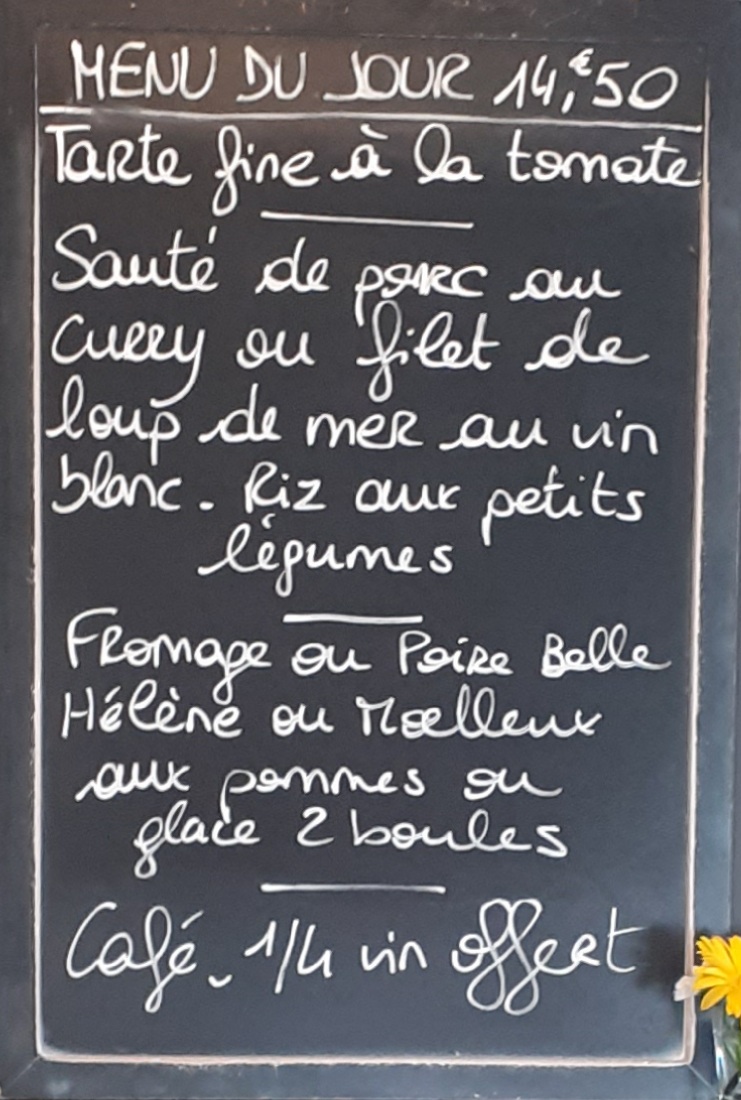 MENU DU JOUR 14,€50
Tarte fine à la tomate
Sauté de porc au
curry ou filet de
loup de mer au vin
blanc. Riz aux petits
légumes
Fromage ou Poire Belle
Hélène ou Moelleux
aux pommes ou
glace 2 boules
Café. 1/4 vin offert